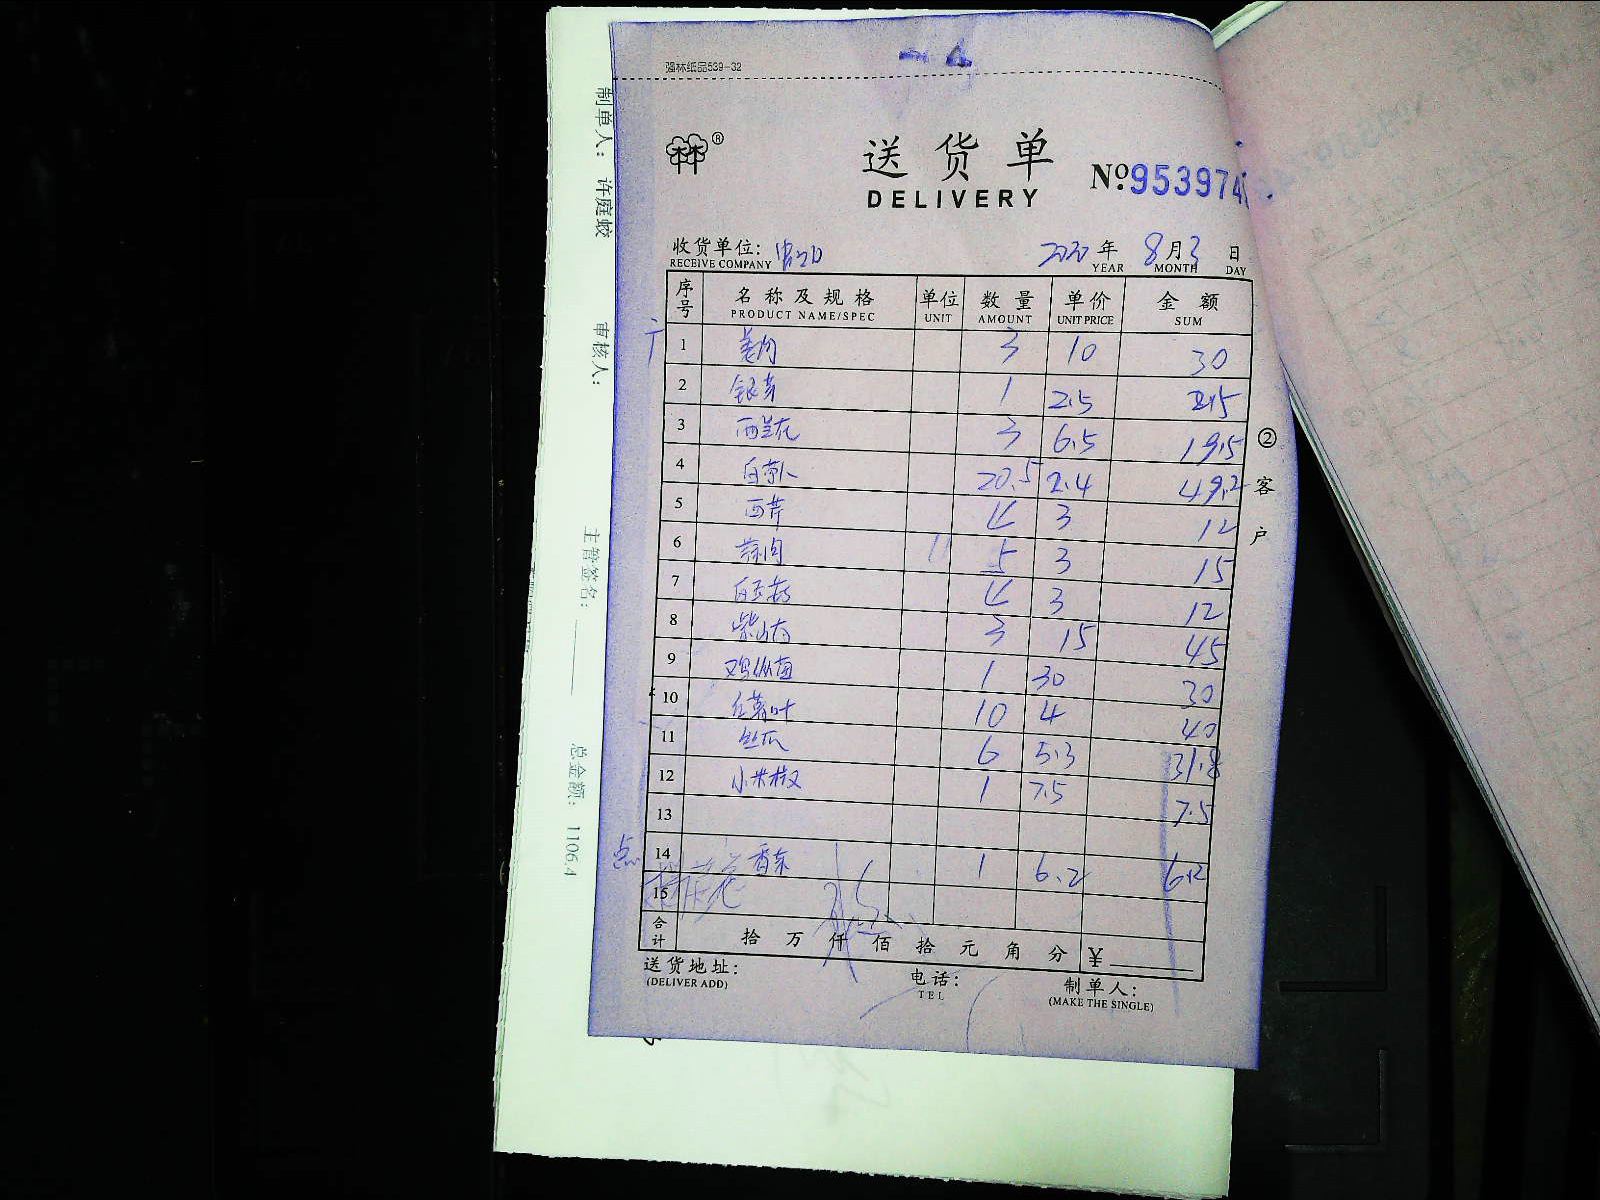 强林纸品539-32
林林®
送货单
DELIVERY
№953974
收货单位: 2020年 8月3日
RECEIVE COMPANY YEAR MONTH DAY
序号 名称及规格 单位 数量 单价 金额
PRODUCT NAME/SPEC UNIT AMOUNT UNIT PRICE SUM
1 姜肉 3 10 30
2 银芽 1 2.5 2.5
3 西兰花 3 6.5 19.5
4 白萝卜 20.5 2.4 49.2
5 西芹 4 3 12
6 蒜肉 5 3 15
7 白玉菇 4 3 12
8 紫山药 3 15 45
9 鸡枞菌 1 30 30
10 红薯叶 10 4 40
11 丝瓜 6 5.3 31.8
12 小米椒 1 7.5 7.5
13
点 14 香菜 1 6.2 6.2
15
合计 拾 万 仟 佰 拾 元 角 分 ¥
送货地址: 电话: 制单人:
(DELIVER ADD) TEL (MAKE THE SINGLE)
②客户
制单人: 许庭蛟 审核人: 主管签名: 总金额: 1106.4